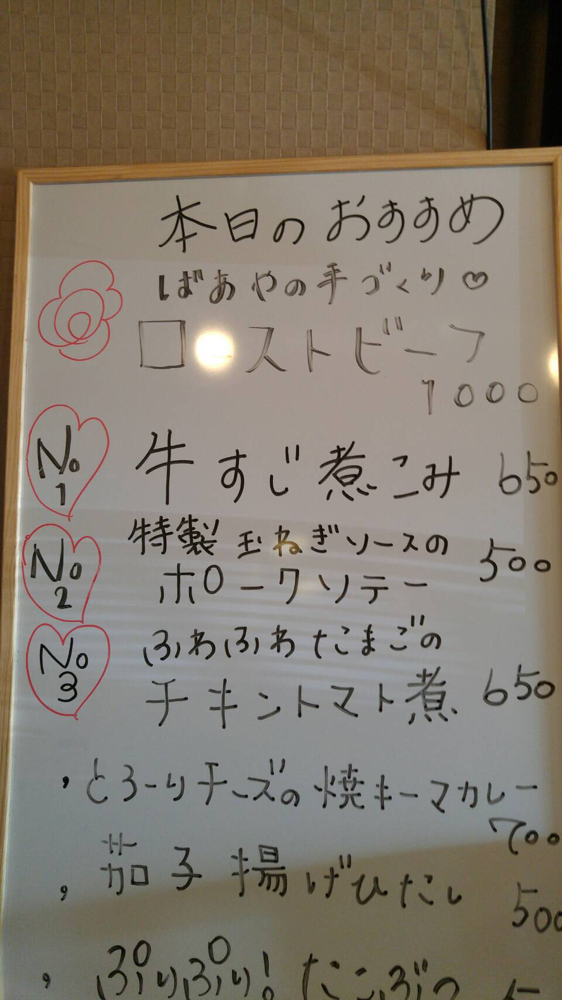 本日のおすすめ
ばあやの手づくり♡
ローストビーフ
1000
No
1
牛すじ煮こみ 650
No
2
特製玉ねぎソースの
ポークソテー 500
No
3
ふわふわたまごの
チキントマト煮 650
,とろーりチーズの焼キーマカレー
700
,茄子揚げひたし 500
,ぷりぷり!